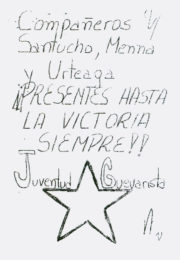 Compañeros
Santucho, Menna
y Urteaga
¡¡PRESENTES HASTA
LA VICTORIA
SIEMPRE!!
Juventud Guevarista